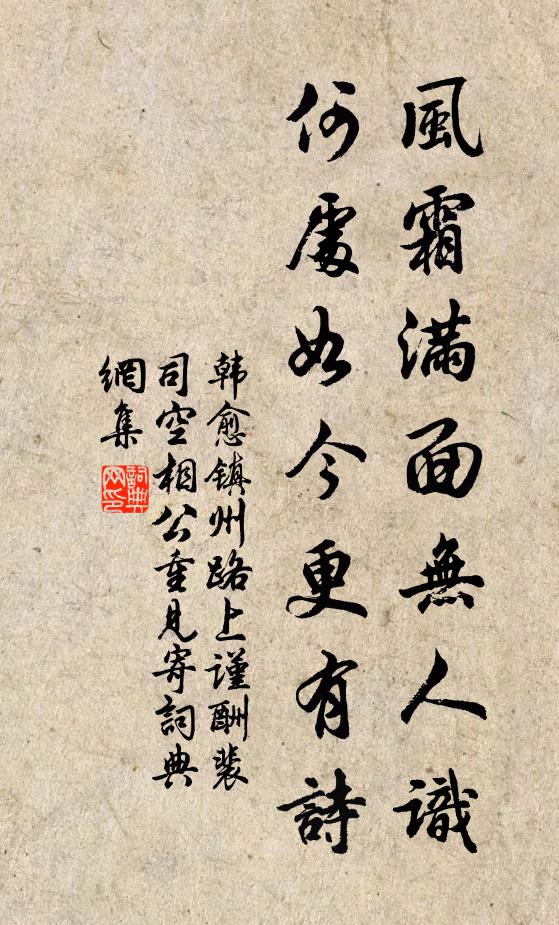 風霜滿面無人識
何處如今更有詩
韩愈镇州路上谨酬裴
司空相公重見寄詞典
網集
詞典
网印